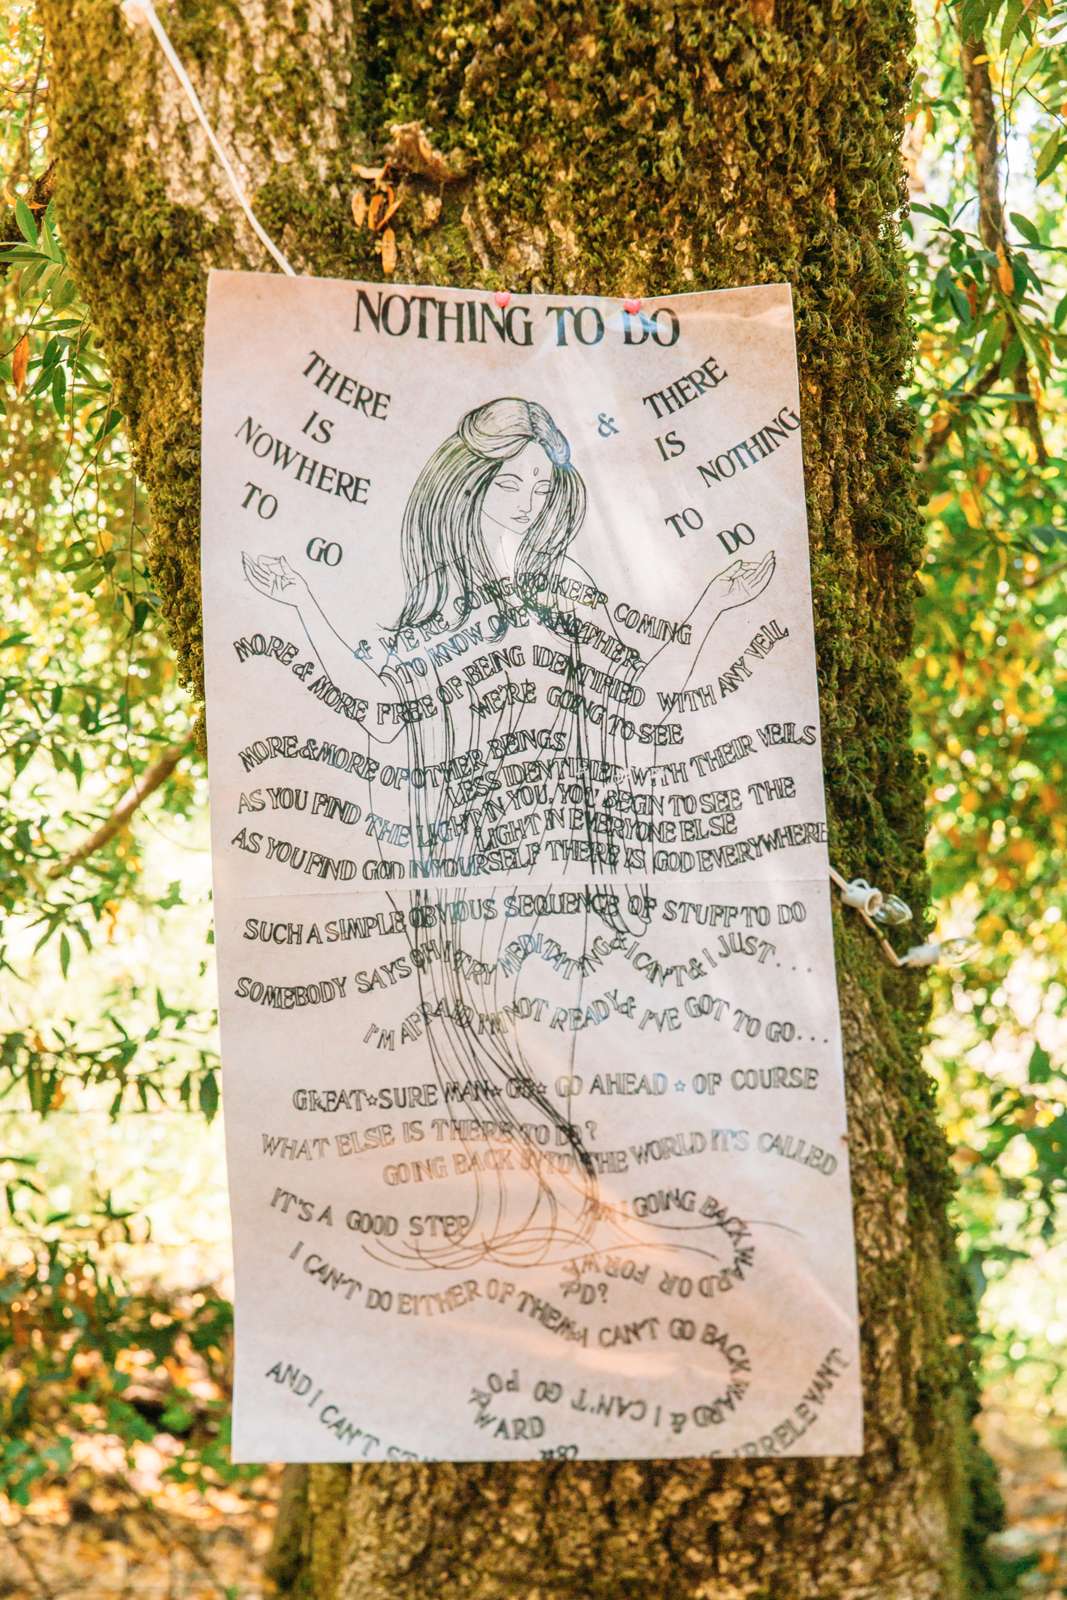 NOTHING TO DO
THERE
IS
NOWHERE
TO
GO
& THERE
IS
NOTHING
TO
DO
& WE'RE GOING TO KEEP COMING
TO KNOW ONE ANOTHER
MORE & MORE FREE OF BEING IDENTIFIED WITH ANY VEIL
WE'RE GOING TO SEE
MORE & MORE OF OTHER BEINGS
LESS IDENTIFIED WITH THEIR VEILS
AS YOU FIND THE LIGHT IN YOU, YOU BEGIN TO SEE THE
LIGHT IN EVERYONE ELSE
AS YOU FIND GOD IN YOURSELF THERE IS GOD EVERYWHERE
SUCH A SIMPLE OBVIOUS SEQUENCE OF STUFF TO DO
SOMEBODY SAYS OH I TRY MEDITATING & I CAN'T & I JUST....
I'M AFRAID I'M NOT READY & I'VE GOT TO GO...
GREAT☆SURE MAN☆ GO☆ GO AHEAD ☆ OF COURSE
WHAT ELSE IS THERE TO DO?
GOING BACK INTO THE WORLD IT'S CALLED
IT'S A GOOD STEP
AM I GOING BACKWARD OR FORWARD?
I CAN'T DO EITHER OF THEM & I CAN'T GO BACKWARD & I CAN'T GO FORWARD
AND I CAN'T
IRRELEVANT